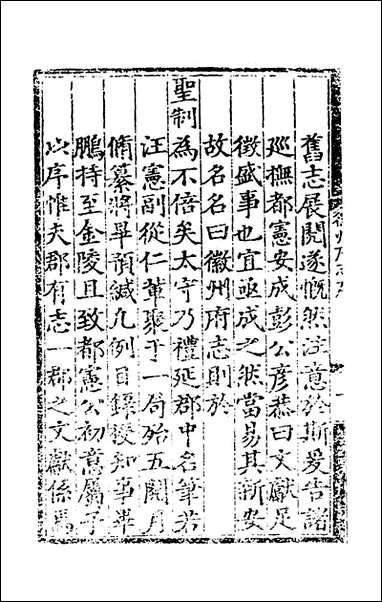 舊志展閱遂慨然注意於斯爰告諸
廵撫都憲安成彭公彦恭曰文獻足
徵盛事也宜亟成之然當易其新安
故名名曰徽州府志則於
聖制為不倍矣太守乃禮延郡中名筆若
汪憲副從仁軰聚于一局殆五閱月
脩纂將畢預緘凡例目錄授知事畢
鵬持至金陵且致都憲公初意屬予
以序惟夫郡有志一郡之文獻係焉